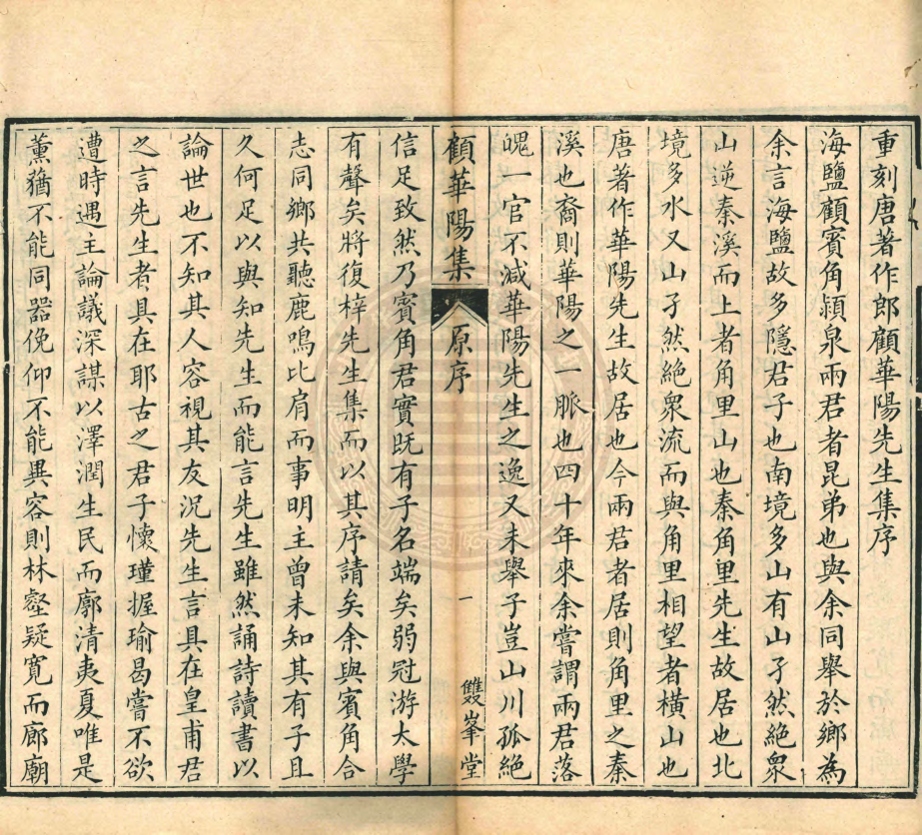 重刻唐著作郎顧華陽先生集序
海鹽顧賓角潁泉兩君者昆弟也與余同舉於鄉為
余言海鹽故多隱君子也南境多山有山孑然絶衆
山逆秦溪而上者角里山也秦角里先生故居也北
境多水又山孑然絶衆流而與角里相望者橫山也
唐著作華陽先生故居也今兩君者居則角里之秦
溪也裔則華陽之一脈也四十年來余嘗謂兩君落
魄一官不减華陽先生之逸又未舉子豈山川孤絶
顧華陽集 原序 一 雙峯堂
信足致然乃賓角君實既有子名端矣弱冠游太學
有聲矣將復梓先生集而以其序請矣余與賓角合
志同鄉共聽鹿鳴比肩而事明主曾未知其有子且
久何足以與知先生而能言先生雖然誦詩讀書以
論世也不知其人容視其友況先生言具在皇甫君
之言先生者具在耶古之君子懷瑾握瑜曷嘗不欲
遭時遇主論議深謀以澤潤生民而廓清夷夏唯是
薰猶不能同器俛仰不能異容則林壑疑寬而廊廟